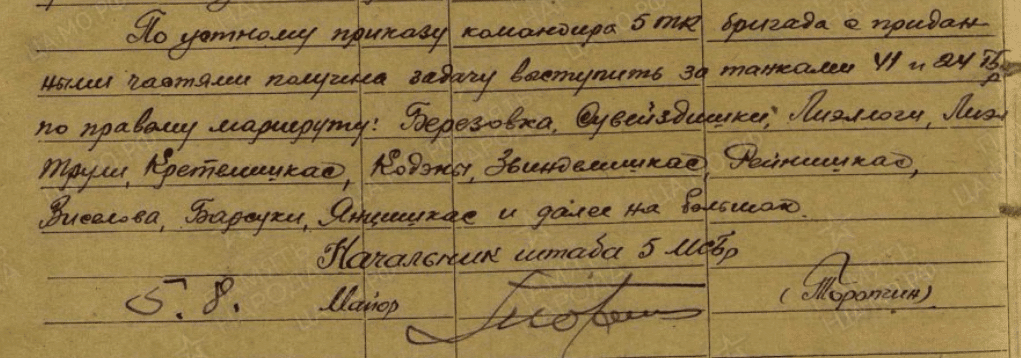 По устному приказу командира 5 тк бригада с придан
ными частями получила задачу выступить за танками 41 и 24 тбр
по правому маршруту: Березовка, Сувейздишки, Лиэллоги, Лиэл
трули, Кретелишкас, Кодэны, Звинделишкас, Рейнишкас,
Виселова, Барсуки, Янцишкас и далее на большак.
Начальник штаба 5 мсбр
5. 8. Майор (Торопчин)